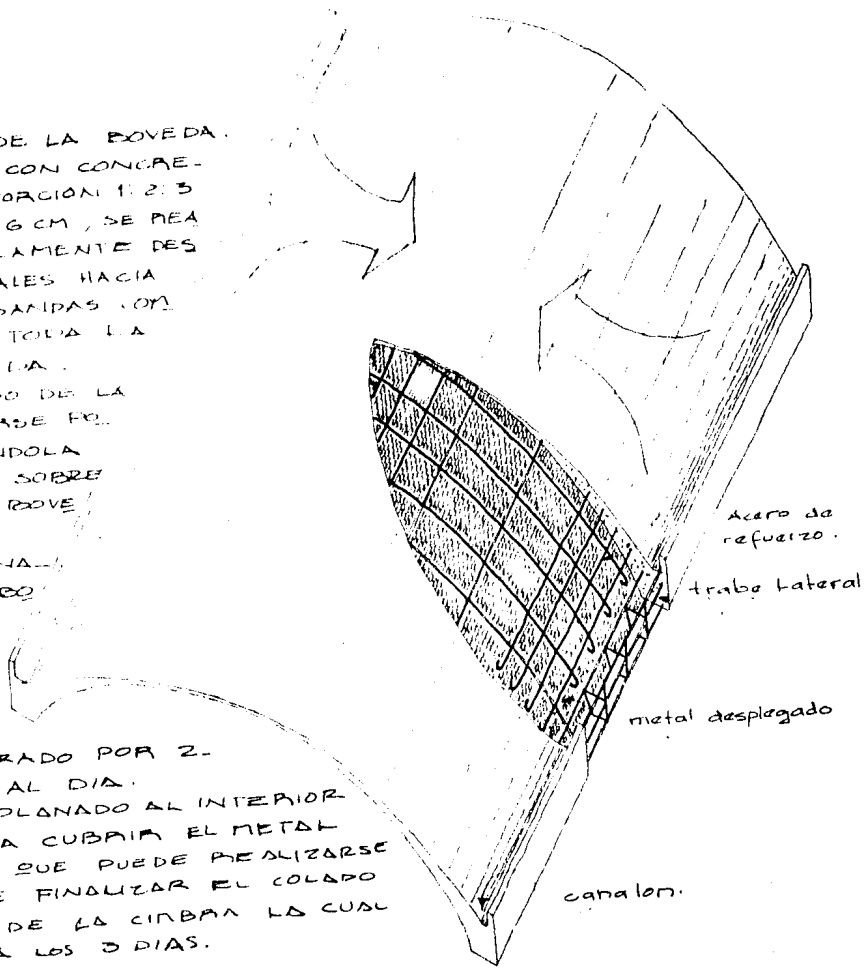 DE LA BOVEDA.
CON CONCRE-
ORCIÓN 1:2:3
6 CM, SE REA
LAMENTE DES
ALES HACIA
BANDAS OM
TODA LA
DA.
DO DE LA
ASE
NDOLA
SOBRE
BOVE
NA-
BO
RADO POR 2-
AL DIA.
PLANADO AL INTERIOR
A CUBRIR EL METAL
QUE PUEDE REALIZARSE
E FINALIZAR EL COLADO
DE LA CIMBRA LA CUAL
A LOS 3 DIAS.
Acero de
refuerzo.
trabe Lateral
metal desplegado
canalon.